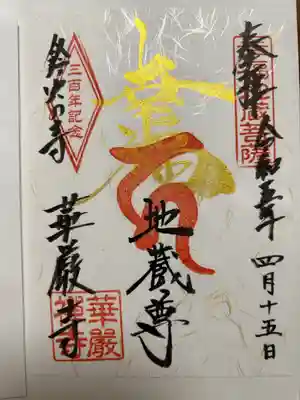 奉拝 令和五年 四月十五日
地蔵尊
三百年記念
鈴虫寺
華嚴寺
華嚴禅寺
菩薩